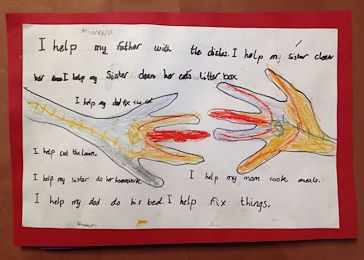 I help my father with the dishes. I help my sister clean
her room I help my sister clean her cat's litter box
I help my dad fix the car
I help cut the lawn.
I help my sister do her homework. I help my mom cook meals.
I help my dad do his bed. I help fix things.